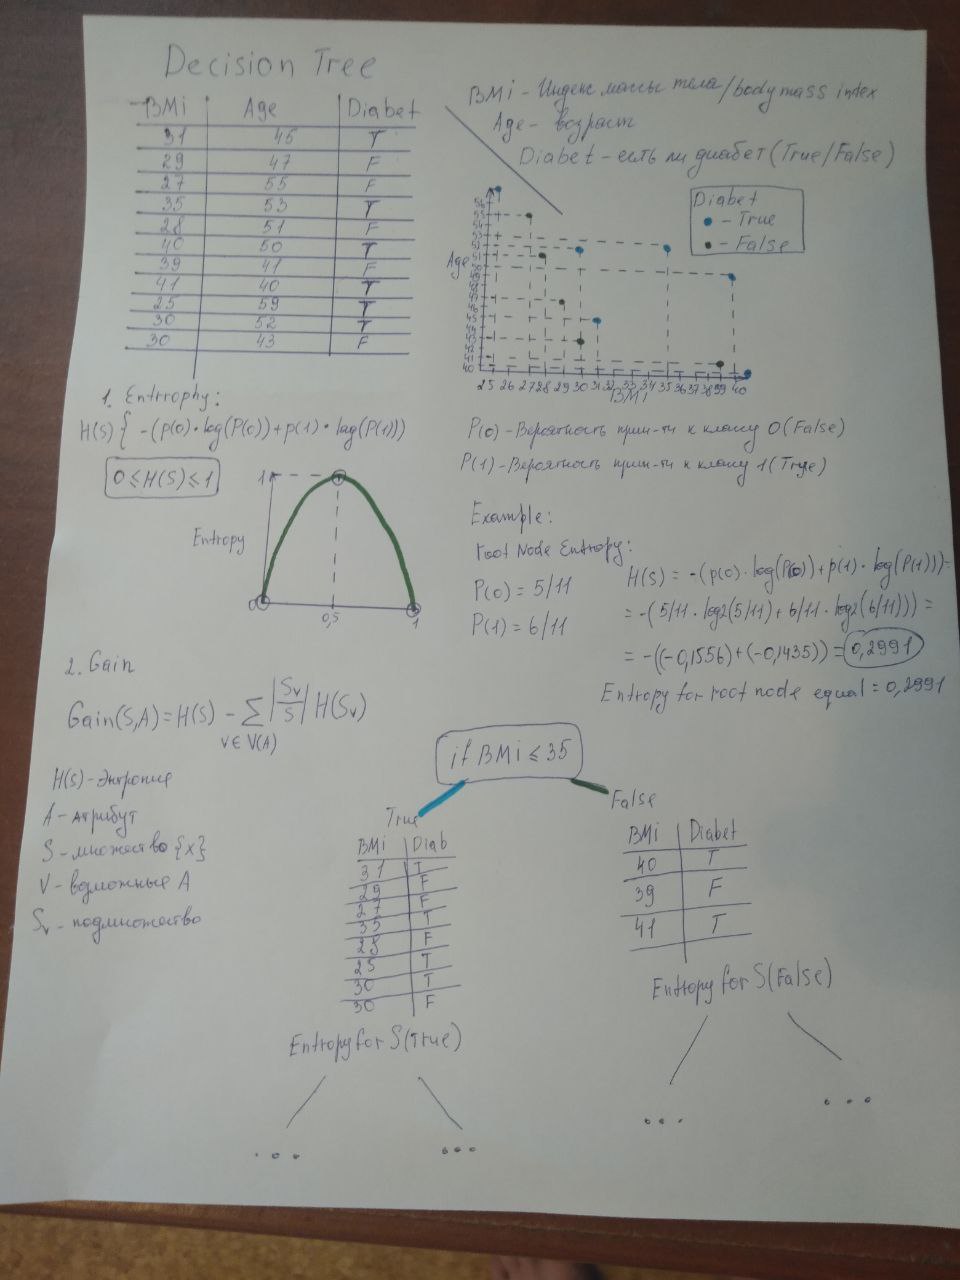 Decision Tree
BMi Age Diabet
31 45 T
29 47 F
27 55 F
35 53 T
28 51 F
40 50 T
39 41 F
41 40 T
25 59 T
30 52 T
30 43 F
BMi - Индекс массы тела/body mass index
Age - возраст
Diabet - есть ли диабет (True/False)
Diabet
- True
- False
Age
25 26 27 28 29 30 31 32 33 34 35 36 37 38 39 40
BMi
1. Entrophy:
H(S) { -(p(0)·log(P(0))+p(1)·log(P(1)))
0≤H(S)≤1
1
Entropy
0 0,5 1
P(0) - Вероятность прин-ти к классу 0 (False)
P(1) - Вероятность прин-ти к классу 1 (True)
Example:
root Node Entropy:
P(0) = 5/11
P(1) = 6/11
H(S) = -(p(0)·log(P(0))+p(1)·log(P(1)))=
= -(5/11·log2(5/11)+6/11·log2(6/11))) =
= -((-0,1556)+(-0,1435)) = 0,2991
Entropy for root node equal = 0,2991
2. Gain
Gain(S,A) = H(S) - ∑ |Sv/S| H(Sv)
v∈V(A)
H(S) - Энтропия
A - Атрибут
S - множество {x}
V - возможные A
Sv - подмножество
if BMi ≤ 35
True
False
BMi Diab
31 T
29 F
27 F
35 T
28 F
25 T
30 T
30 F
Entropy for S(True)
... ...
BMi Diabet
40 T
39 F
41 T
Entropy for S(False)
... ...